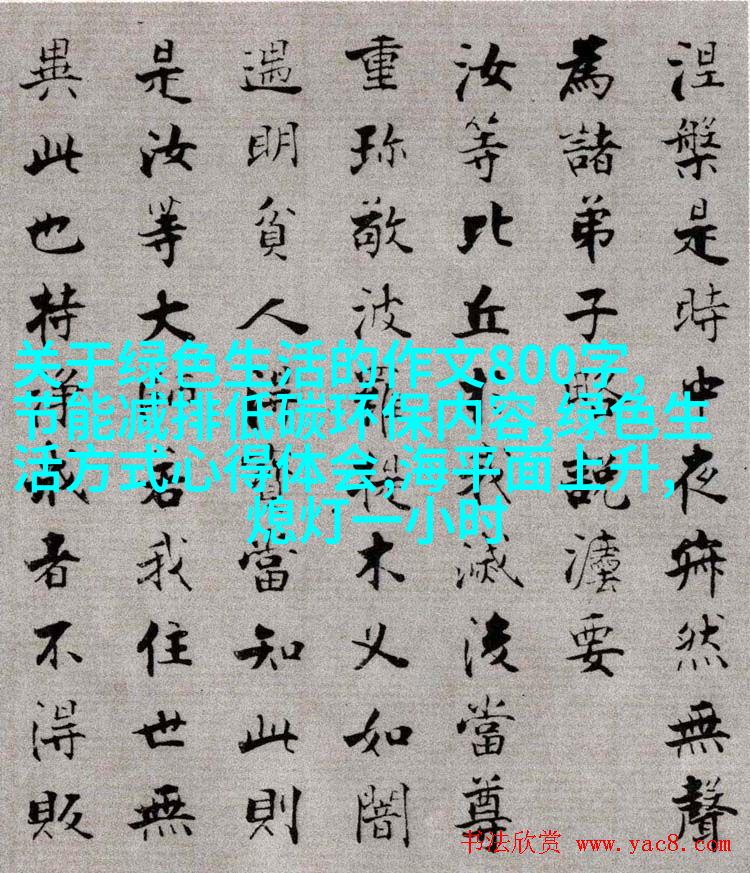 涅槃是時中夜寂然無聲
為諸弟子略說法要
汝等比丘於我滅後當尊
重珍敬波羅提木叉如闇
遇明貧人得寶當知此則
是汝等大師若我住世無
異此也持淨戒者不得販
关于绿色生活的作文800字,
节能减排低碳环保内容,绿色生
活方式心得体会,海平面上升,
熄灯一小时
书法欣赏 www.yac8.com